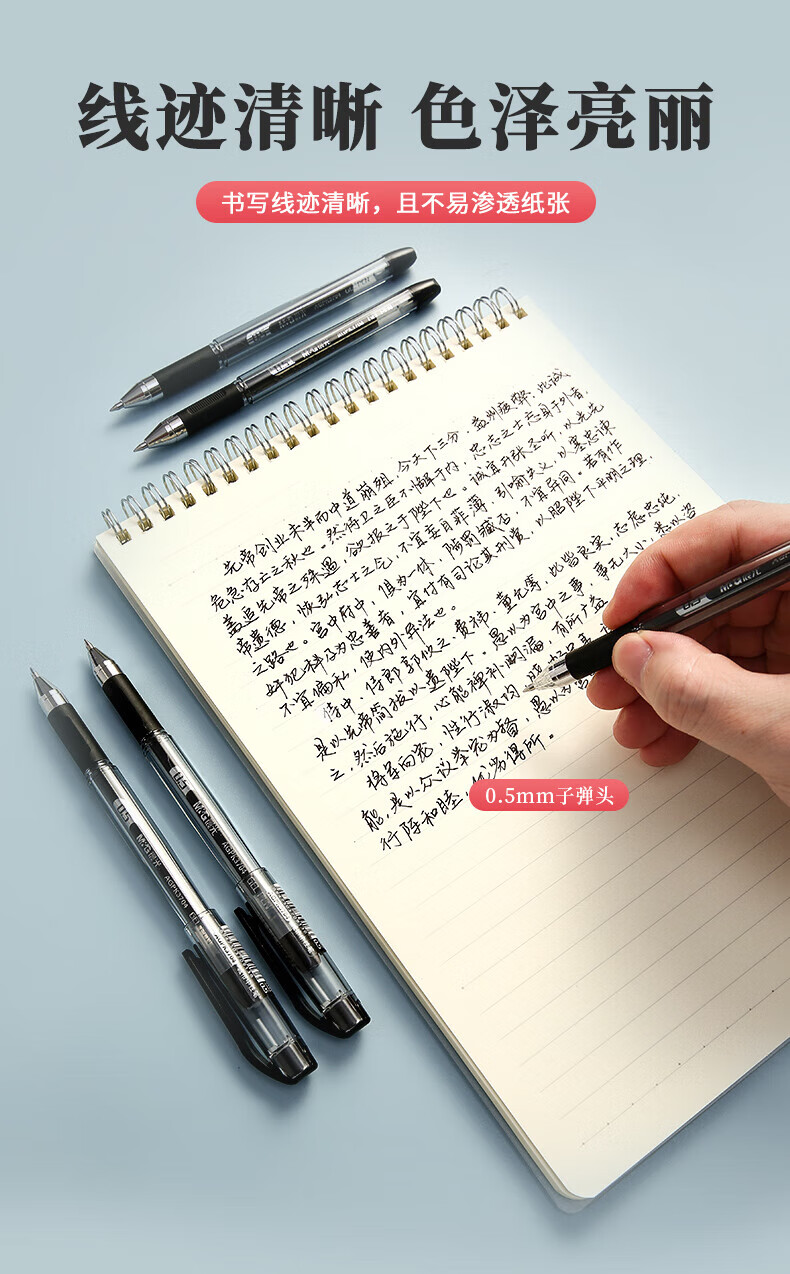 线迹清晰 色泽亮丽
书写线迹清晰，且不易渗透纸张
先帝创业未半而中道崩殂，今天下三分，益州疲弊，此诚
危急存亡之秋也。然侍卫之臣不懈于内，忠志之士忘身于外者，
盖追先帝之殊遇，欲报之于陛下也。诚宜开张圣听，以光先
帝遗德，恢弘志士之气，不宜妄自菲薄，引喻失义，以塞忠谏
之路也。宫中府中，俱为一体，陟罚臧否，不宜异同。若有作
奸犯科及为忠善者，宜付有司论其刑赏，以昭陛下平明之理，
不宜偏私，使内外异法也。
侍中、侍郎郭攸之、费祎、董允等，此皆良实，志虑忠纯，
是以先帝简拔以遗陛下。愚以为宫中之事，事无大小，悉以咨
之，然后施行，必能裨补阙漏，有所广益
将军向宠，性行淑均
能，是以众议举宠为督，愚以为
行阵和睦，优劣得所。
0.5mm子弹头
0.5 M&G晨光
0.5 M&G晨光 AGPK3704
0.5 M&G晨光 AGPK3704 GEL